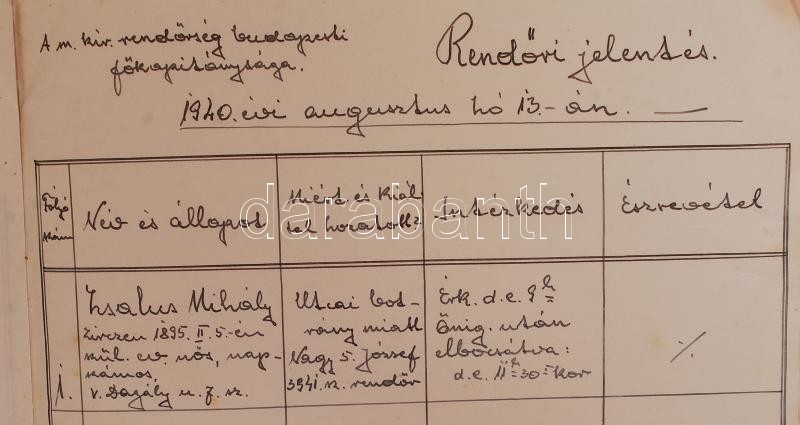 A m. kir. rendőrség budapesti
főkapitánysága.
Rendőri jelentés.
1940. évi augusztus hó 13.-án.
Folyó
szám
Név és állapot
Miért és kiál-
tal hozatott
Intézkedés
Észrevétel
1.
Zsalus Mihály
Zirczen 1895. II. 5.-én
szül. ev. nős, nap-
számos,
V. Dagály u. 7. sz.
Utcai bot-
rány miatt
Nagy S. József
3941. sz. rendőr
Érk. d.e. 9h
Őnig. után
elbocsátva:
d.e. 11h 30-kor
·/.
darabanth